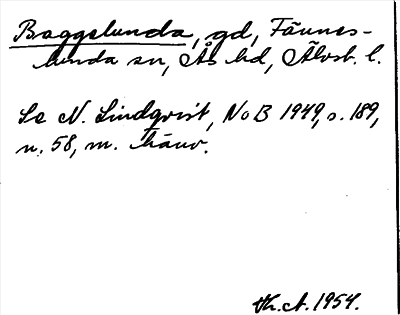 Baggelunda, gd, Fännes-
lunda sn, Ås hd, Älvsb. l.
Se N. Lindqvist, NoB 1949, s. 189,
n. 58, m. hänv.
1954.